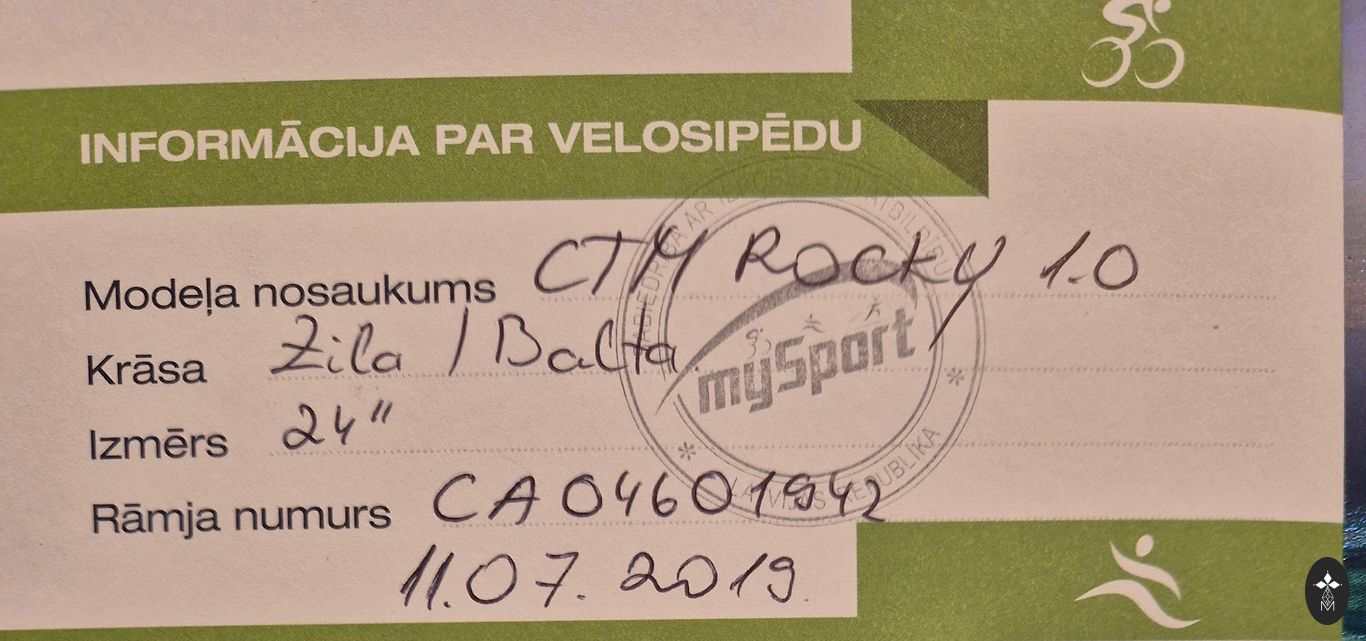 INFORMĀCIJA PAR VELOSIPĒDU
Modeļa nosaukums CTM Rocky 1.0
Krāsa Zila / Balta
Izmērs 24"
Rāmja numurs CA04601942
11.07.2019
mySport
LATVIJAS REPUBLIKA